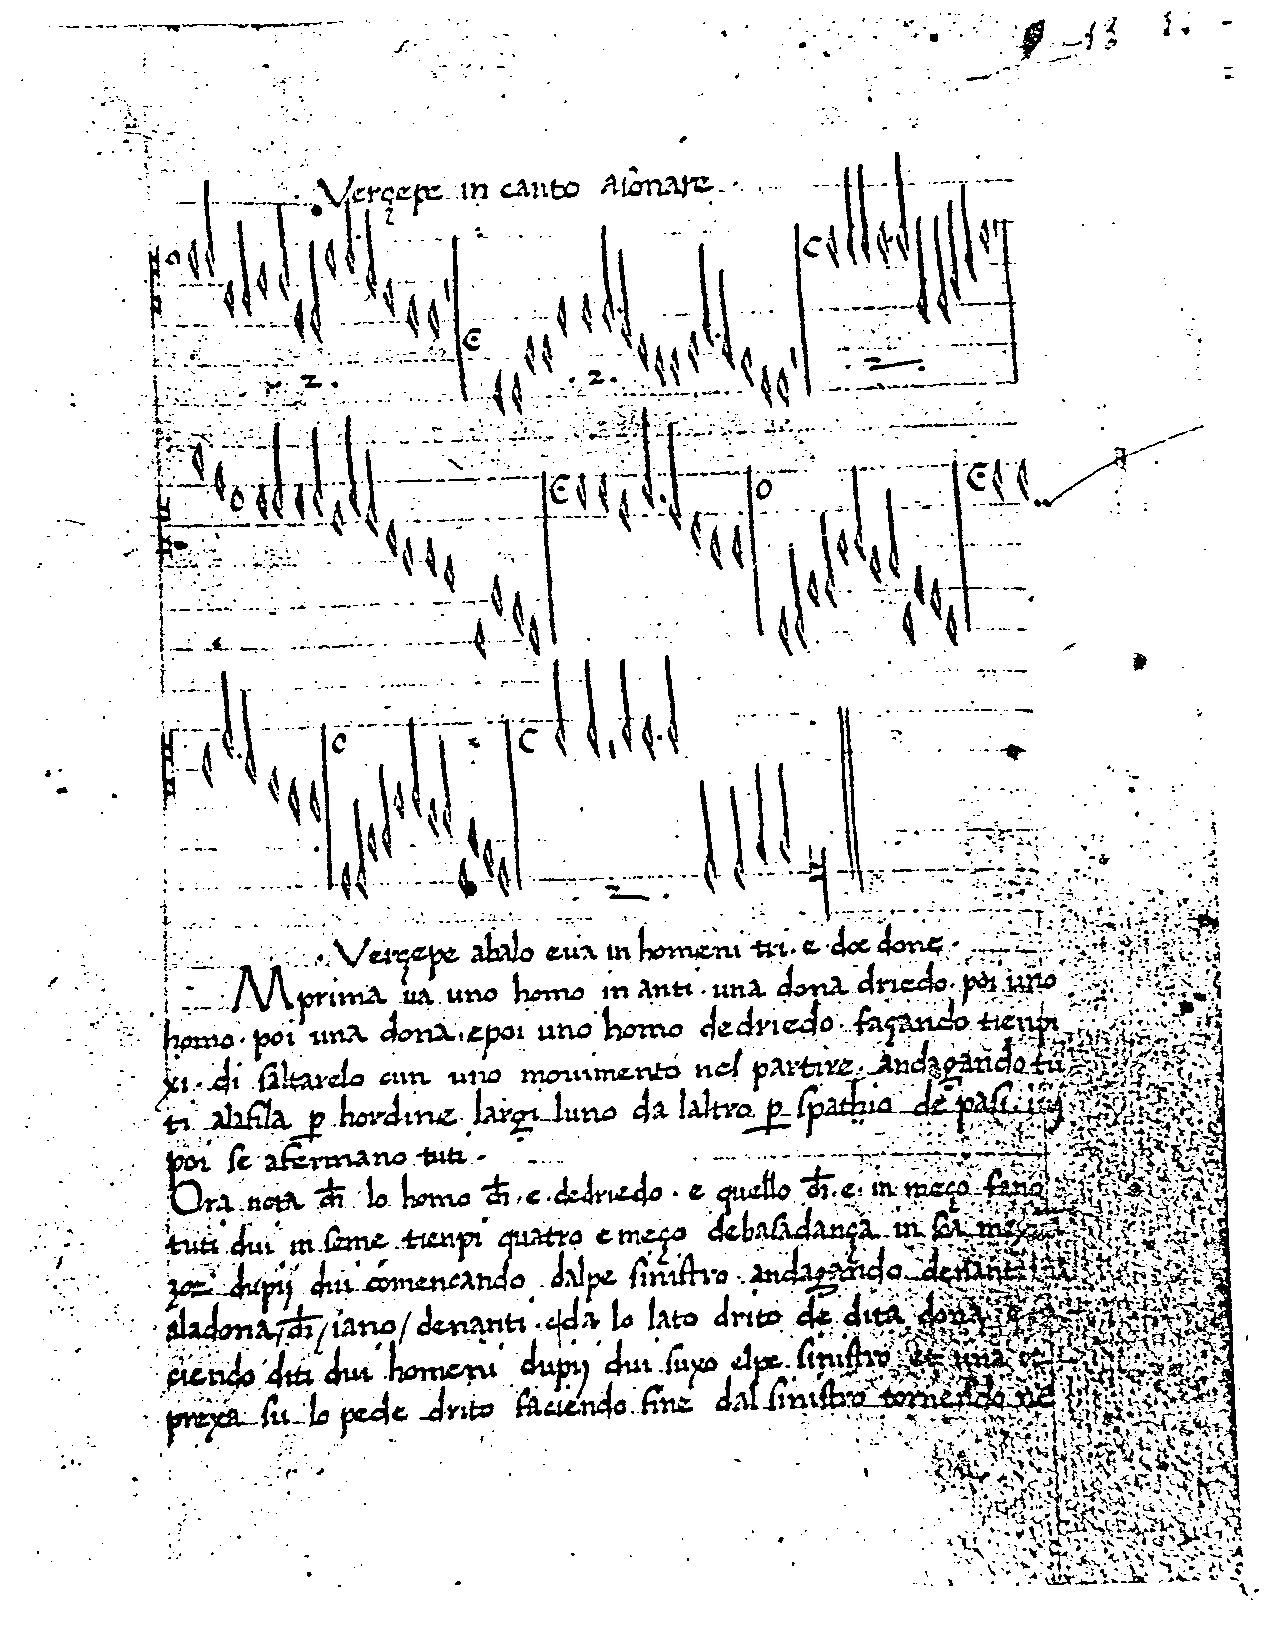 13
· Verçepe in canto aiõnare ·
· Verçepe abalo eua in homeni tri · e · doe done ·
Mprima ua uno homo in anti · una dona driedo · poi uno
homo · poi una dona · epoi uno homo dedriedo · façando tienpi
xi · di saltarelo cun uno mouimento nel partire · andagando tu
ti alafila p hordine largi luno da laltro p spathio de pasi iij
poi se afermano tuti ·
Ora nota ch̃i lo homo ch̃i · e · dedriedo · e quello ch̃i · e · in meço fano
tuti dui in seme tienpi quatro e meço debasadança in
zoe dupij dui comencando dalpe sinistro andagando denanti
aladona / ch̃i / iano / denanti · e da lo lato drito de dita dona
ciendo diti dui homeni dupij dui suxo elpe sinistro et una
prexa su lo pede drito faciendo fine dal sinistro tornando ne